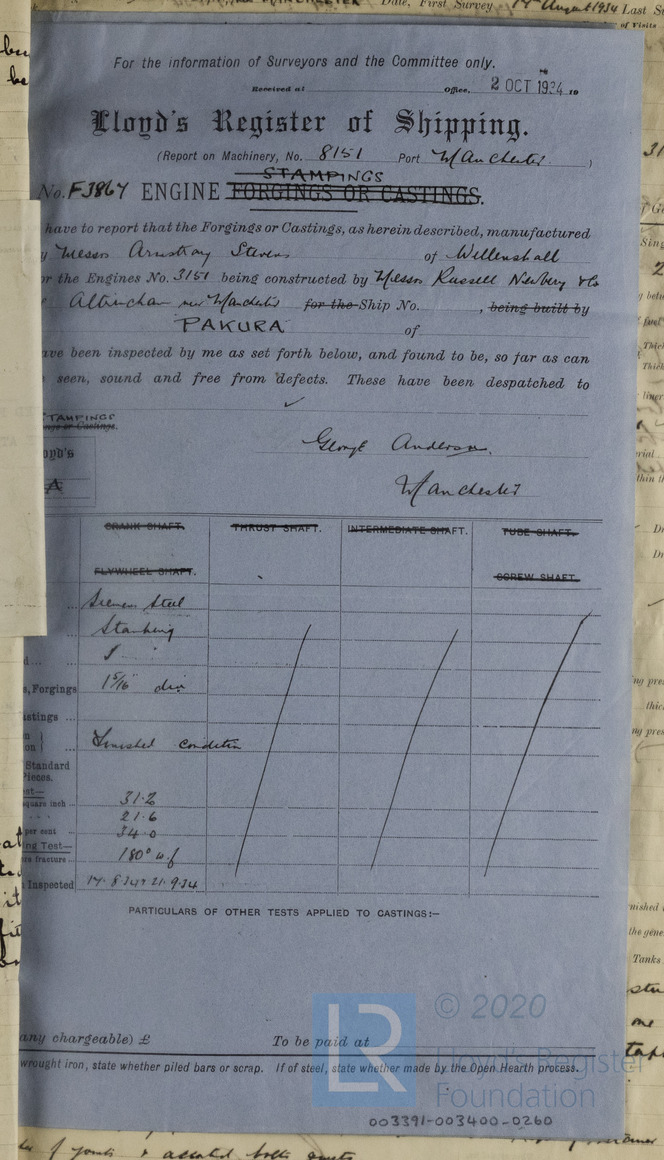 MANCHESTER Date, First Survey 17th August 1934 Last
of Visits
For the information of Surveyors and the Committee only.
Received at Office, 2 OCT 1934 19
Lloyd's Register of Shipping.
(Report on Machinery, No. 8151 Port Manchester )
STAMPINGS
No. F3867 ENGINE FORGINGS OR CASTINGS.
have to report that the Forgings or Castings, as herein described, manufactured
y Messrs Armstrong Stevens of Willenhall
or the Engines No. 3151 being constructed by Messrs Russell Newbery & Co
Altrincham near Manchester for the Ship No. , being built by
"PAKURA" of
ave been inspected by me as set forth below, and found to be, so far as can
seen, sound and free from defects. These have been despatched to
✓
STAMPINGS
ngs or Castings.
George Anderson.
oyd's
Manchester
A
CRANK SHAFT. THRUST SHAFT. INTERMEDIATE SHAFT. TUBE SHAFT.
FLYWHEEL SHAFT. SCREW SHAFT.
Siemens Steel
Stamping
s, Forgings 1 5/16" dia
astings ...
on } Finished condition
Standard
Pieces.
est—
square inch ... 31.2
21.6
per cent ... 34.0
ng Test—
re fracture... 180° u.f
Inspected 17.8.34 & 21.9.34
PARTICULARS OF OTHER TESTS APPLIED TO CASTINGS:—
any chargeable) £ To be paid at
wrought iron, state whether piled bars or scrap. If of steel, state whether made by the Open Hearth process.
LR © 2020
Lloyd's Register
Foundation
003391-003400-0260
of joints & assorted bolts